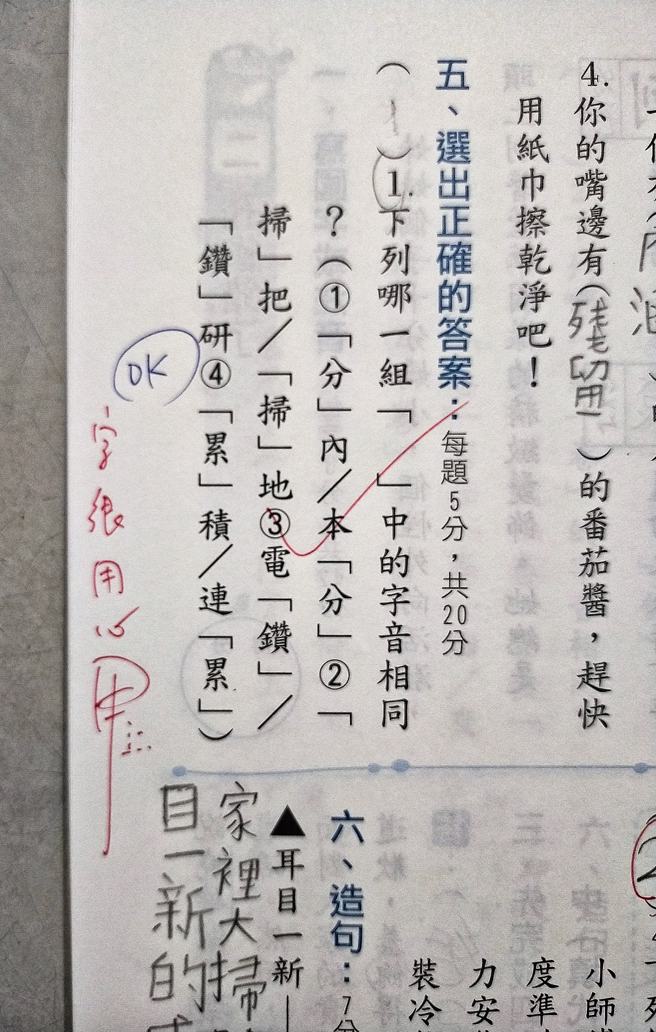 4. 你的嘴邊有（残留）的番茄醬，趕快
用紙巾擦乾淨吧！
五、選出正確的答案：每題5分，共20分
（1）1. 下列哪一組「　」中的字音相同
？（①「分」內／本「分」②「
掃」把／「掃」地③電「鑽」／
「鑽」研④「累」積／連「累」）
OK
字很用心
小師
度準
力安
裝冷
六、造句：7分
▲耳目一新—
家裡大掃
目一新的